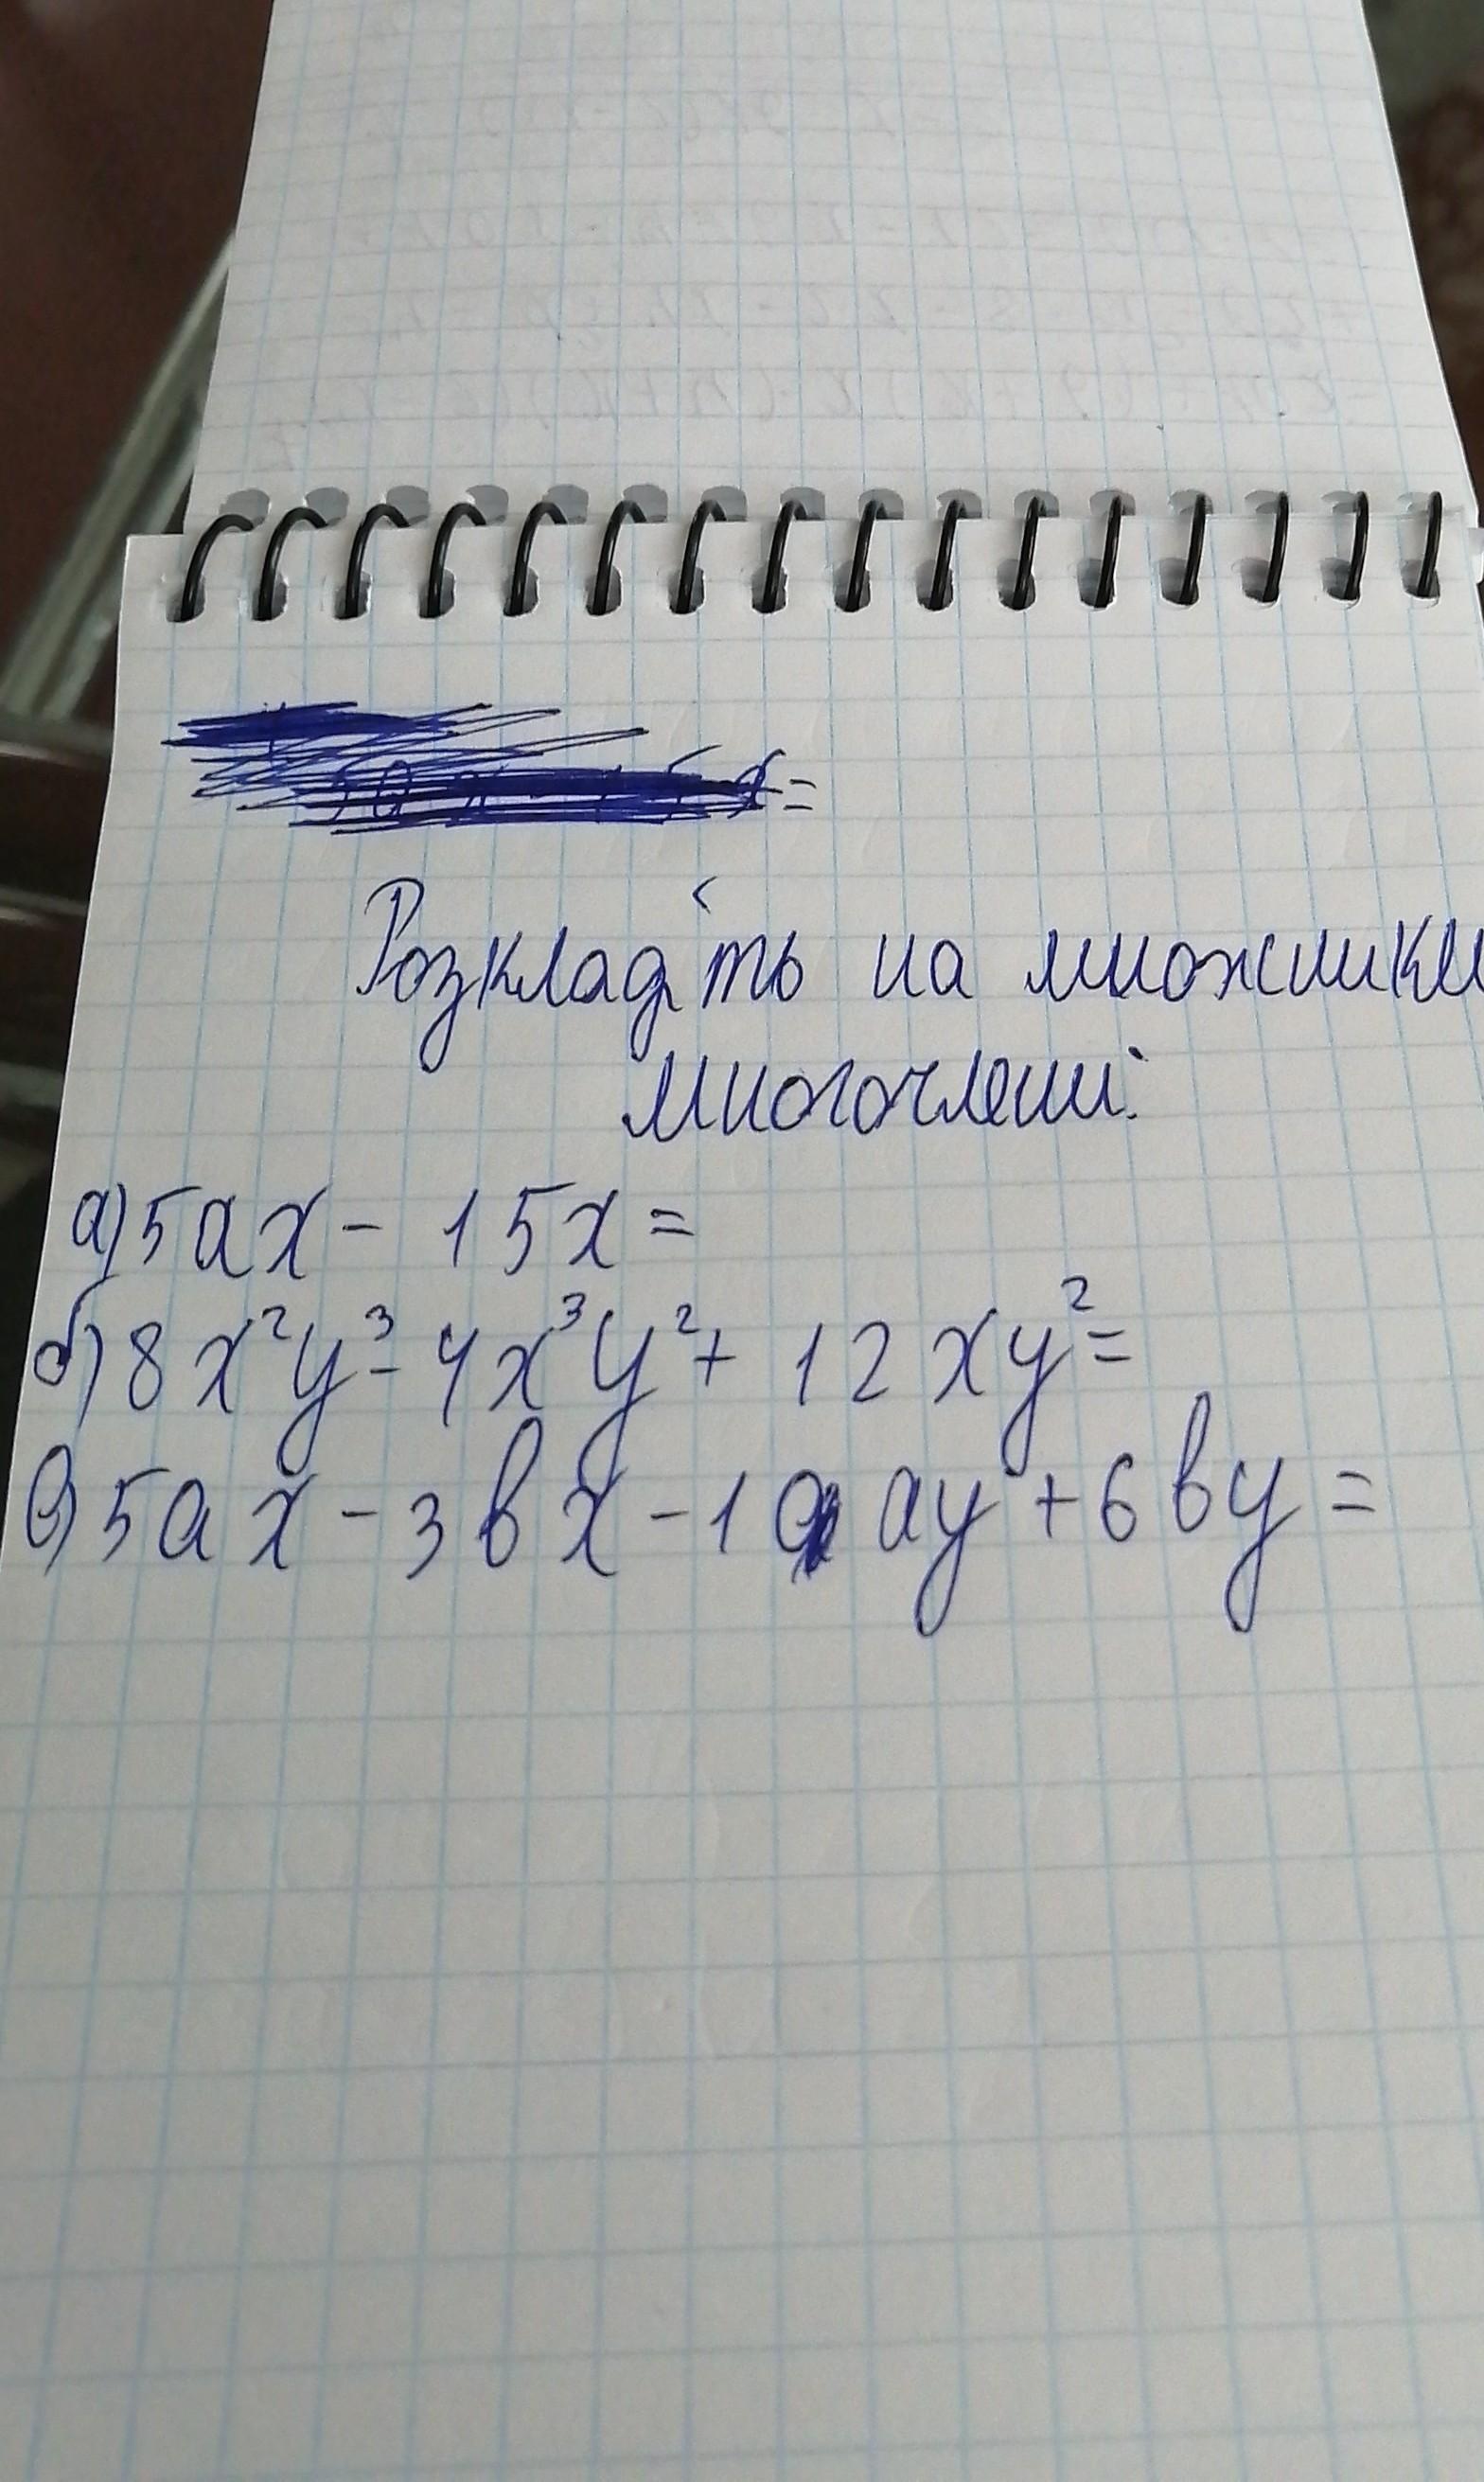 Розкладіть на множники
многочлени:
а) 5ax - 15x =
б) 8x²y³ - 4x³y² + 12xy² =
в) 5ax - 3bx - 10 ay + 6by =